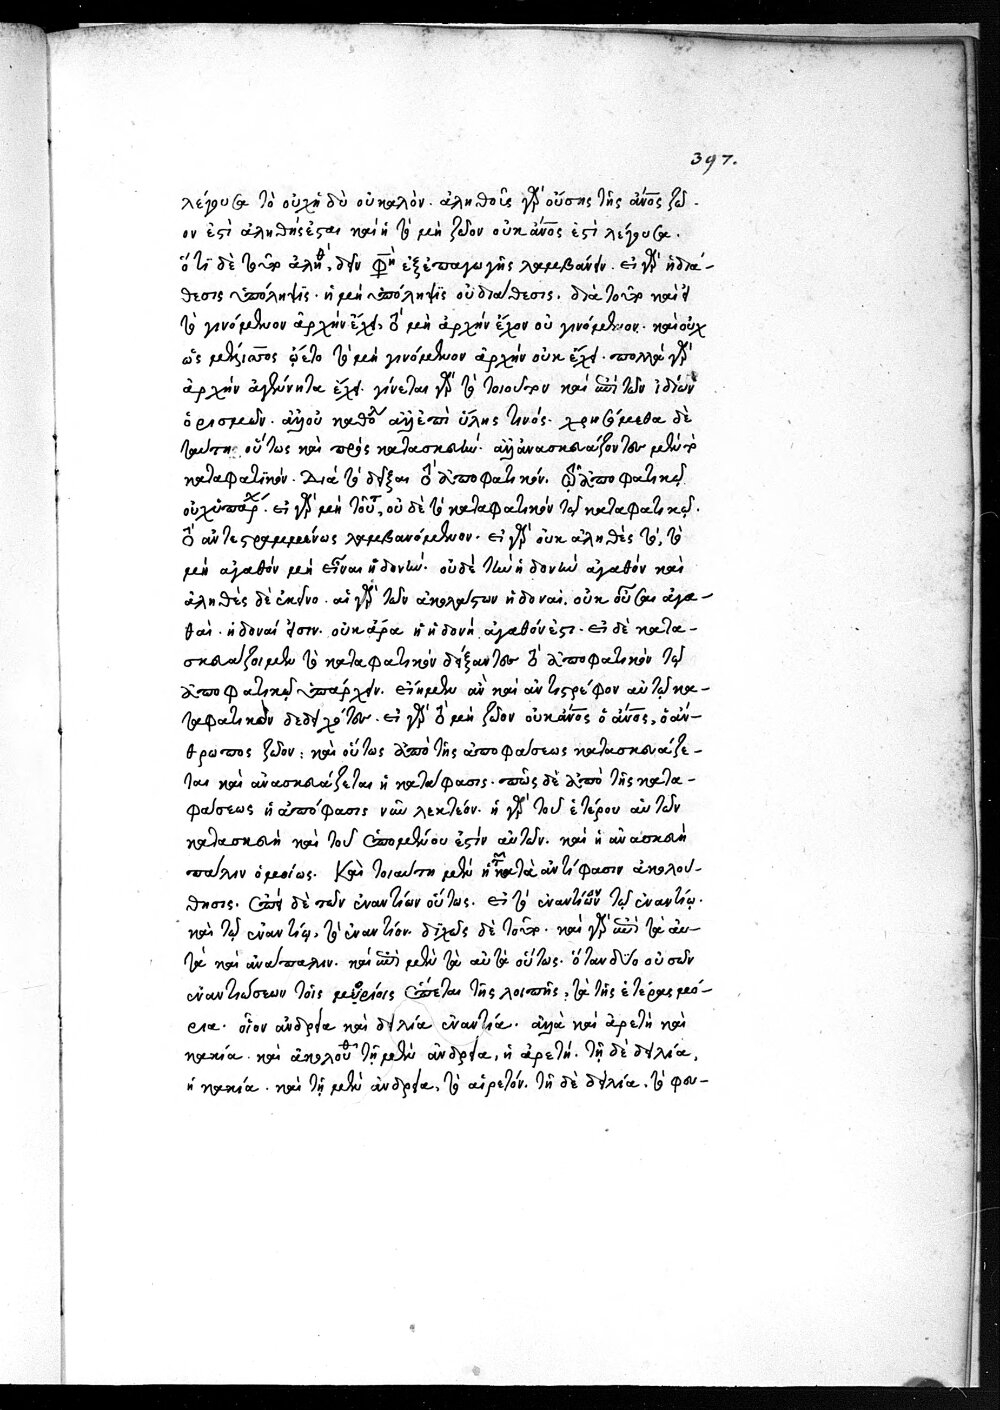 397.
λέγουσα τὸ οὐχ ἡδὺ οὐ καλόν. ἀληθοῦς γὰρ οὔσης τῆς ἄνος ζῶ-
ον ἐστὶ ἀληθής ἐσται καὶ ἡ τὸ μὴ ζῶον οὐκ ἄνος ἐστὶ λέγουσα.
ὅτι δὲ τοῦτο ἀληθὲς, δεῖν φησὶ ἐξ ἐπαγωγῆς λαμβάνειν. εἰ γὰρ ἡ διά-
θεσις ὑπόληψις. ἡ μὴ ὑπόληψις οὐ διάθεσις. διὰ τοῦτο καὶ εἰ
τὸ γινόμενον ἀρχὴν ἔχει, τὸ μὴ ἀρχὴν ἔχον οὐ γινόμενον. καὶ οὐχ
ὡς μέλισσος ᾤετο τὸ μὴ γινόμενον ἀρχὴν οὐκ ἔχει. πολλὰ γὰρ
ἀρχὴν ἀγέννητα ἔχει. γίνεται γὰρ τὸ τοιοῦτον καὶ ἐπὶ τῶν ἰδίων
ὁρισμῶν. ἀλλ' οὐ καθόλου ἀλλ' ἐπὶ ὕλης τινός. χρησόμεθα δὲ
ταύτῃ οὕτως καὶ πρὸς κατασκευήν. ἀλλ' ἀνασκευάζοντες μὲν τὸ
καταφατικόν. Διὰ τὸ δεῖξαι τὸ ἀποφατικόν, τῷ ἀποφατικῷ
οὐχ ὑπάρχειν. εἰ γὰρ μὴ τοῦτο, οὐδὲ τὸ καταφατικὸν τῷ καταφατικῷ.
τὸ ἀντεστραμμένως λαμβανόμενον. εἰ γὰρ οὐκ ἀληθὲς τὸ, τὸ
μὴ ἀγαθὸν μὴ εἶναι ἡδονήν. οὐδὲ τὴν ἡδονὴν ἀγαθὸν καὶ
ἀληθὲς δὲ ἐκεῖνο. αἱ γὰρ τῶν ἀκολάστων ἡδοναὶ, οὐκ οὖσαι ἀγα-
θαὶ. ἡδοναί εἰσιν. οὐκ ἄρα ἡ ἡδονὴ ἀγαθόν ἐστι. εἰ δὲ κατα-
σκευάζοιμεν τὸ καταφατικὸν δείξαντες τὸ ἀποφατικὸν τῷ
ἀποφατικῷ ὑπάρχειν. εἴημεν ἂν καὶ ἀντιστρέφον αὐτῷ κα-
ταφατικὸν δεδειχότες. εἰ γὰρ τὸ μὴ ζῶον οὐκ ἄνος ὁ ἄνος, ὁ ἄν-
θρωπος ζῶον: καὶ οὕτως ἀπὸ τῆς ἀποφάσεως κατασκευάζε-
ται καὶ ἀνασκευάζεται ἡ κατάφασις. πῶς δὲ ἀπὸ τῆς κατα-
φάσεως ἡ ἀπόφασις νῦν λεκτέον. ἡ γὰρ τοῦ ἑτέρου αὐτῶν
κατασκευὴ καὶ τοῦ ἑπομένου ἐστὶν αὐτῶν. καὶ ἡ ἀνασκευὴ
πάλιν ὁμοίως. Καὶ τοιαύτη μὲν ἡ κατὰ ἀντίφασιν ἀκολού-
θησις. ἐπὶ δὲ τῶν ἐναντίων οὕτως. εἰ τὸ ἐναντίον τῷ ἐναντίῳ.
καὶ τῷ ἐναντίῳ, τὸ ἐναντίον. διχῶς δὲ τοῦτο. καὶ γὰρ ἐπὶ τὰ αὐ-
τὰ καὶ ἀνάπαλιν. καὶ ἐπὶ μὲν τὰ αὐτὰ οὕτως. ὅταν δύο οὐσῶν
ἐναντιώσεων τοῖς μορίοις ἕπεται τῆς λοιπῆς, τὰ τῆς ἑτέρας μό-
ρια. οἷον ἀνδρεία καὶ δειλία ἐναντία. ἀλλὰ καὶ ἀρετὴ καὶ
κακία. καὶ ἀκολουθεῖ τῇ μὲν ἀνδρεία, ἡ ἀρετή. τῇ δὲ δειλία,
ἡ κακία. καὶ τῇ μὲν ἀνδρεία, τὸ αἱρετόν. τῇ δὲ δειλία, τὸ φευ-